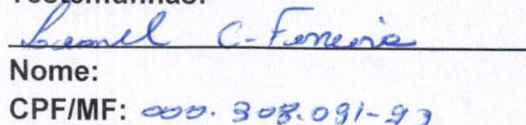 Testemunhas:
C-Ferreira
Nome:
CPF/MF: 000.308.091-93